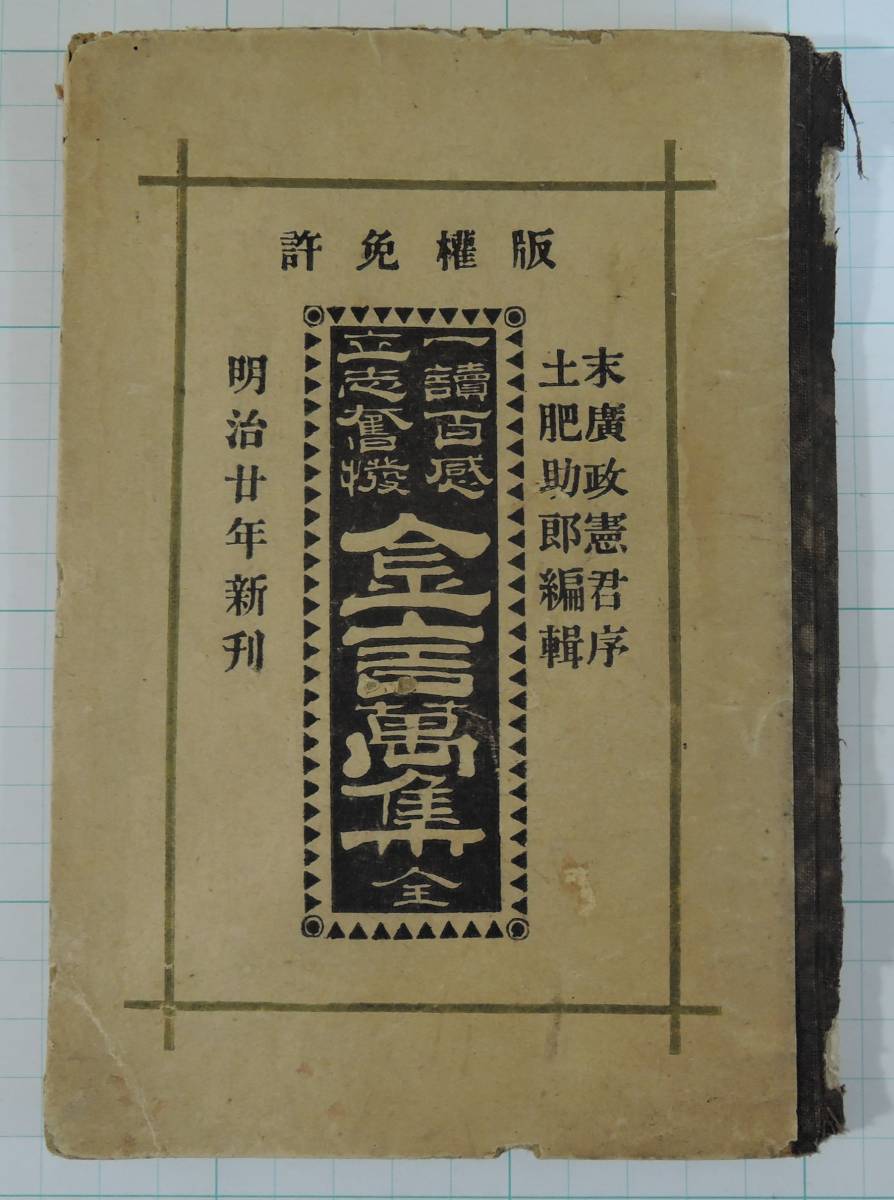 版權免許
末廣政憲君序
土肥助郎編輯
一讀百感
立志奮撥
金言萬集 全
明治廿年新刊